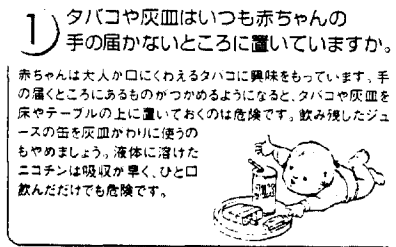 1 タバコや灰皿はいつも赤ちゃんの
手の届かないところに置いていますか。
赤ちゃんは大人が口にくわえるタバコに興味をもっています。手
の届くところにあるものがつかめるようになると、タバコや灰皿を
床やテーブルの上に置いておくのは危険です。飲み残したジュ
ースの缶を灰皿がわりに使うの
もやめましょう。液体に溶けた
ニコチンは吸収が早く、ひと口
飲んだだけでも危険です。